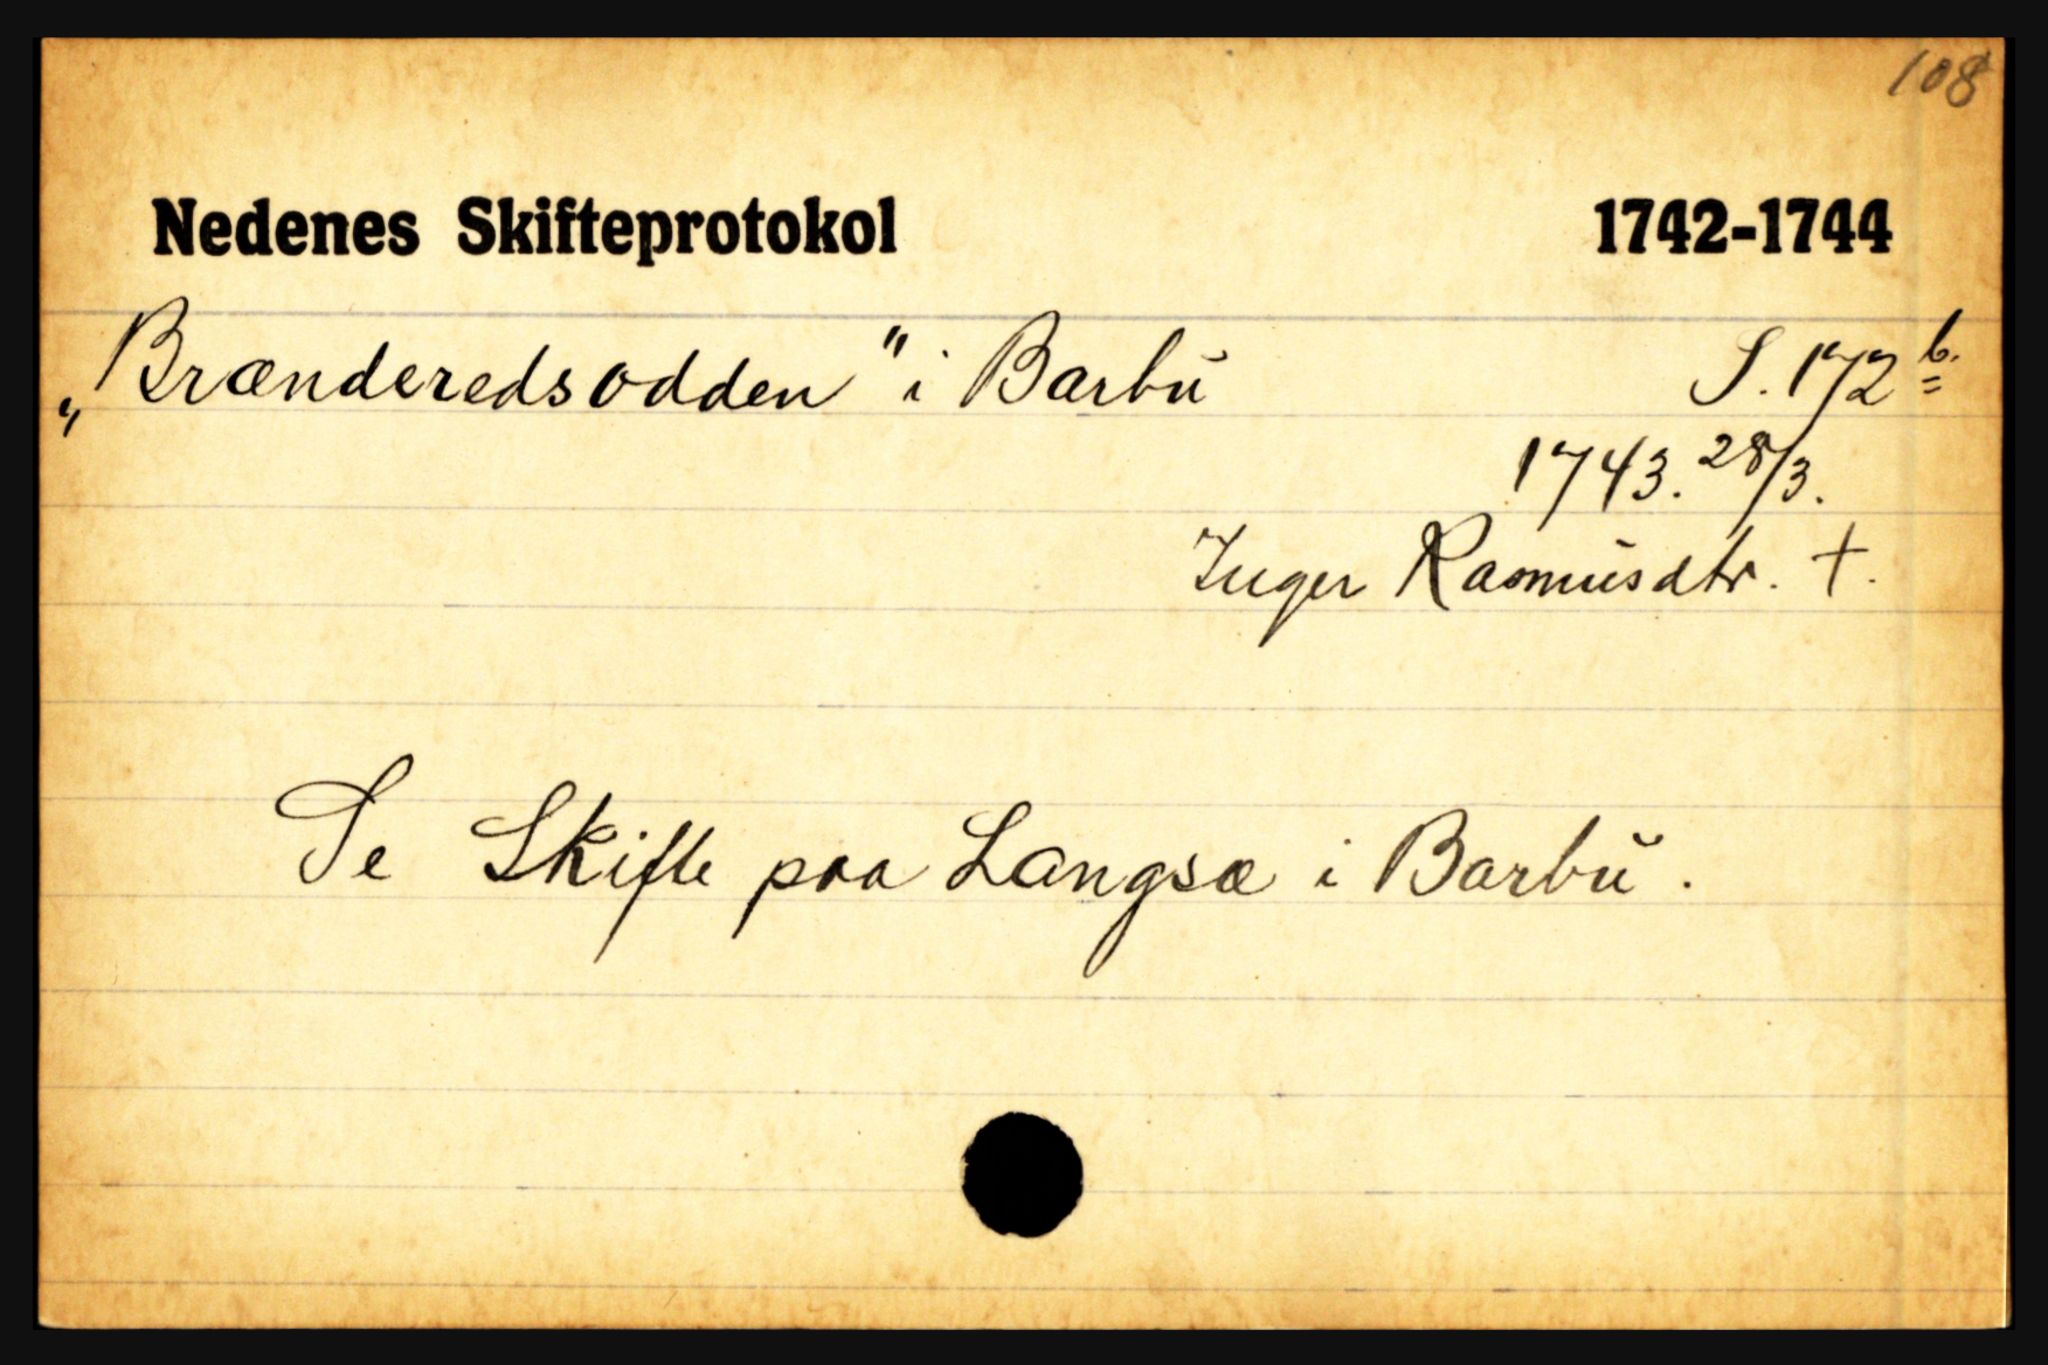 108
Nedenes Skifteprotokol 1742-1744
„Brænderedsodden" i Barbu S. 172 b.
1743. 28/3.
Inger Rasmusdtr. †.
Se Skifte paa Langsæ i Barbu.